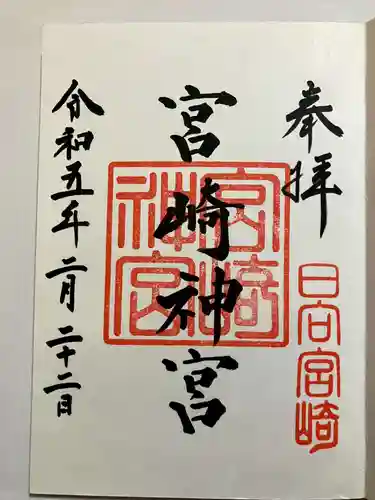 奉拝
日向宮崎
宮崎神宮
宮崎神宮
令和五年二月二十二日